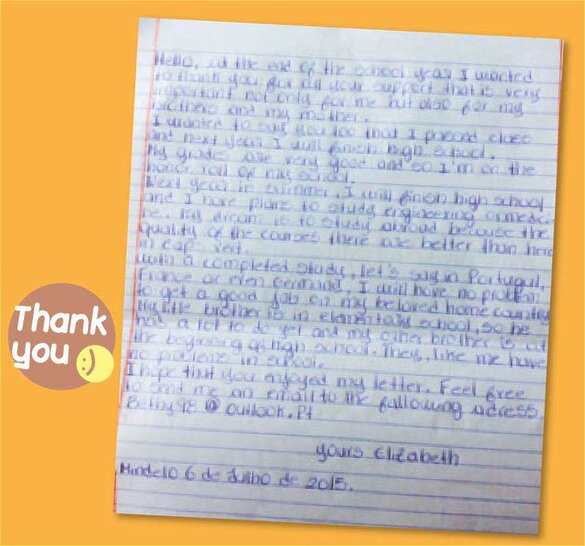 Hello, at the end of the school year I wanted
to thank you for all your support that is very
important not only for me but also for my
brothers and my mother.
I wanted to say you too that I passed class
and next year I will finish high school.
My grades are very good and so I'm on the
honor roll of my school.
Next year in summer, I will finish high school
and I have plans to study engineering or medici-
ne. My dream is to study abroad because the
quality of the courses there are better than here
in cape verd.
With a completed study, let's say in Portugal,
France or even Germany, I will have no problem
to get a good job on my beloved home country
My little brother is in elementary school, so he
has a lot to do yet and my other brother is at
the beginning of high school. They, like me have
no problems in school.
I hope that you enjoyed my letter. Feel free
to send me an email to the following adress
@ outlook.pt
yours Elizabeth
Mindelo 6 de Julho de 2015.
Thank
you :)